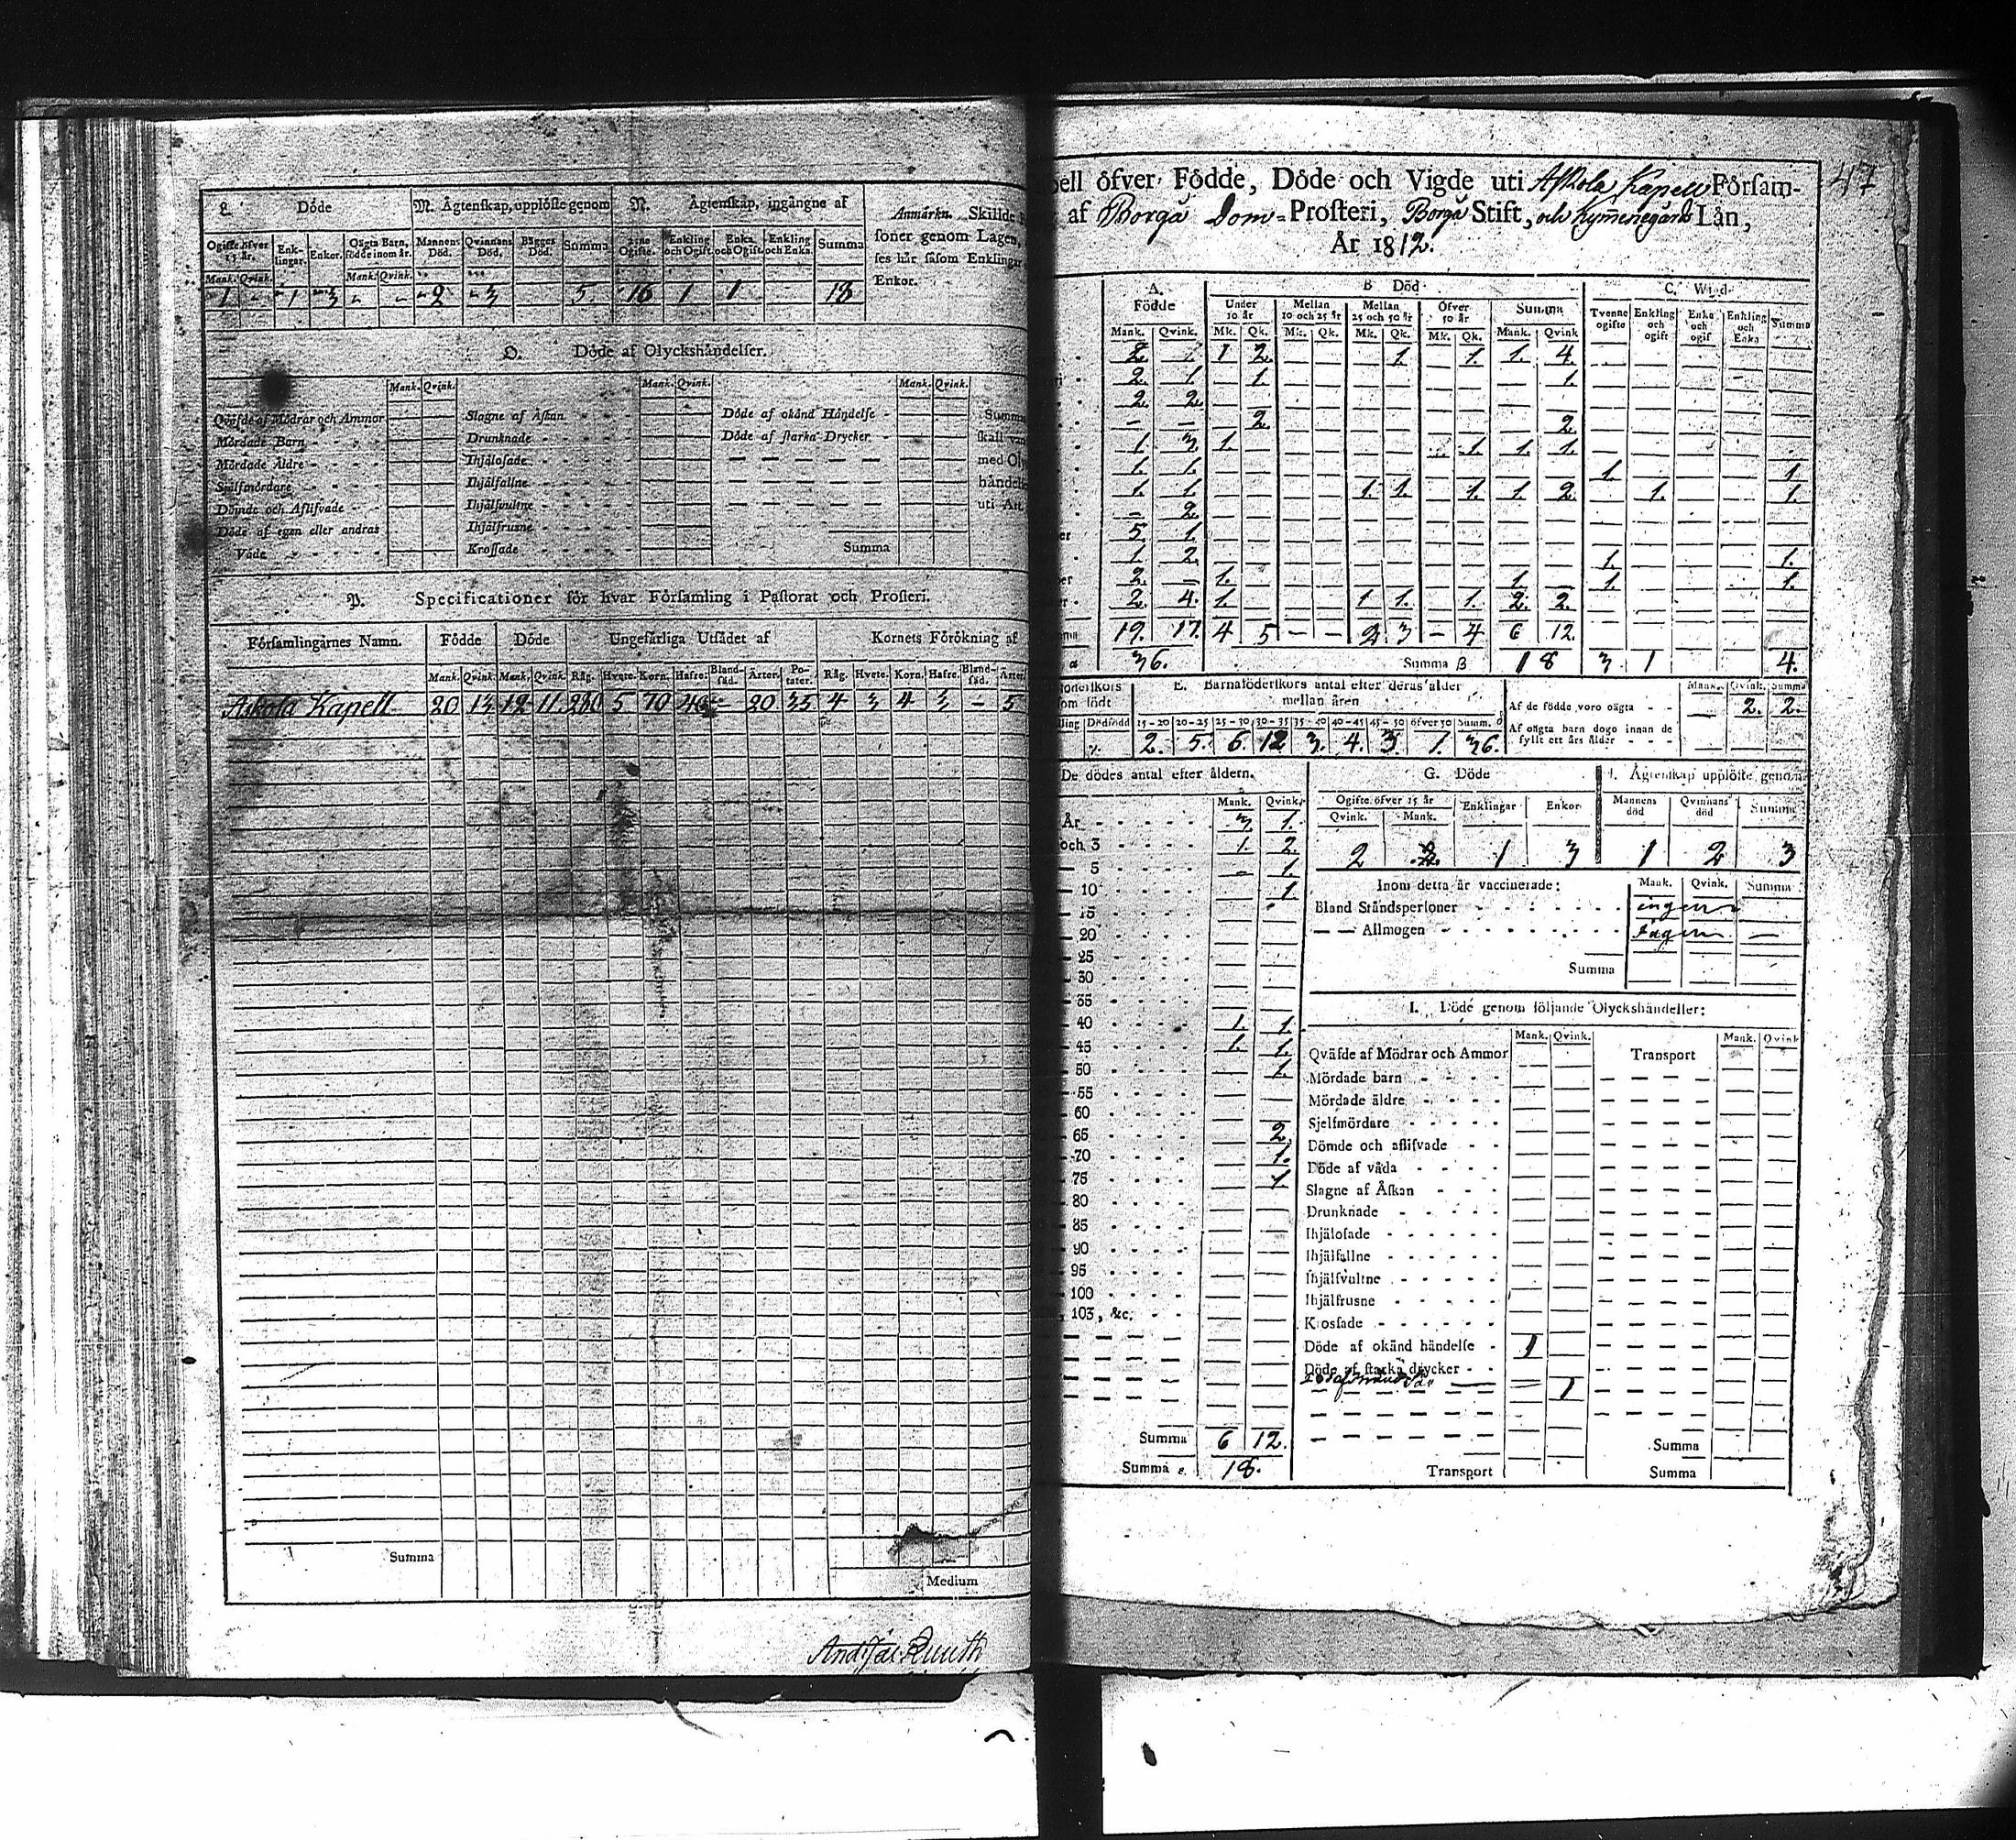 L. Döde
M. Ägtenskap, upplöste genom
N. Ägtenskap, ingångne af
Anmärkn. Skillde
soner genom Lagen,
ses här såsom Enklingar
Enkor.
Ogifte öfver 15 år. Enklingar. Enkor. Oägta Barn, födde inom år. Mannens Död. Qvinnans Död. Bägges Död. Summa Tvne Ogifte. Enkling och Ogift. Enka och Ogift. Enkling och Enka. Summa
Mank. Qvink. Mank. Qvink.
1 - 1 3 - - 2 3 5 16 1 1 18
O. Döde af Olyckshändelser.
Mank. Qvink. Mank. Qvink. Mank. Qvink.
Qväfde af Mödrar och Ammor Slagne af Åskan Döde af okänd Händelse - Summa
Mördade Barn Drunknade Döde af starka Drycker skall
Mördade Äldre Ihjälosade med
Sjelfmördare Ihjälfallne händels
Dömde och Aflifvade Ihjälsvultne uti Art
Döde af egen eller andras Ihjälfrusne
Våde Krossade Summa
P. Specificationer för hvar Församling i Pastorat och Prosteri.
Församlingarnes Namn. Födde Döde Ungefärliga Utsädet af Kornets Förökning af
Mank. Qvink. Mank. Qvink. Råg. Hvete. Korn. Hafre. Blandsäd. Ärter. Potäter. Råg. Hvete. Korn. Hafre. Blandsäd. Ärter
Askola Kapell 20 13 12 11 280 5 70 40 - 20 35 4 3 4 3 - 5
Summa
Medium
47
bell öfver Födde, Döde och Vigde uti Askola Kapell Församling
af Borgå Dom-Prosteri, Borgå Stift, och Kymenegårds Län,
År 1812.
A. Födde B Död C. Wigd
Under 10 år Mellan 10 och 25 år Mellan 25 och 50 år Öfver 50 år Summa Tvenne ogifte Enkling och ogift Enka och ogif Enkling och Enka Summa
Mank. Qvink. Mk. Qk. Mk. Qk. Mk. Qk. Mk. Qk. Mank. Qvink
2 1 1 2 — — 1 1. 1. 4
2. 1 1. 1.
2. 2.
— — 2 2.
1 3 1. 1. 1. 1.
1. 1. 1. 1
1. 1 1 1. 1. 1 2 1. 1.
— 2.
5 1.
1 2. 1. 1.
2. — 1. 1. 1. 1.
2. 4. 1. 1 1. 1. 2. 2.
19. 17. 4 5 - - 2 3 - 4 6 12.
36. Summa B 18 3 1 4.
E. Barnaföderskors antal efter deras ålder
mellan åren
Mank. Qvink. Summa
Af de födde voro oägta - - 2. 2.
Dödfödd 15-20 20-25 25-30 30-35 35-40 40-45 45-50 öfver 50 Summ.
Af oägta barn dogo innan de
fyllt ett års ålder - - -
2. 5. 6. 12 3. 4. 3 1. 36.
De dödes antal efter åldern.
G. Döde
Ägtenskap upplöste genom
Mank. Qvink.
Ogifte öfver 15 år Enklingar Enkor Mannens död Qvinnans död Summa
Qvink. Mank.
År 3. 1.
och 3 1. 2. 2 1 3 1 2 3
5 - 1.
10 1.
15
20
25
30
35
40 1. 1.
45 1. 1.
50 1.
55
60
65 2
70 1.
75 1
80
85
90
95
100
103, &c.
Summa 6 12.
Summa 18.
Inom detta år vaccinerade: Mank. Qvink. Summa
Bland Ståndspersoner - ingen
— — Allmogen - ingen —
Summa
I. Döde genom följande Olyckshändelser:
Mank. Qvink. Mank. Qvink
Qväfde af Mödrar och Ammor Transport
Mördade barn
Mördade äldre
Sjelfmördare
Dömde och aflifvade
Döde af våda
Slagne af Åskan
Drunknade
Ihjälosade
Ihjälfallne
Ihjälsvultne
Ihjälfrusne
Krossade
Döde af okänd händelse - 1
Döde af starka drycker - -
1
Summa
Transport Summa